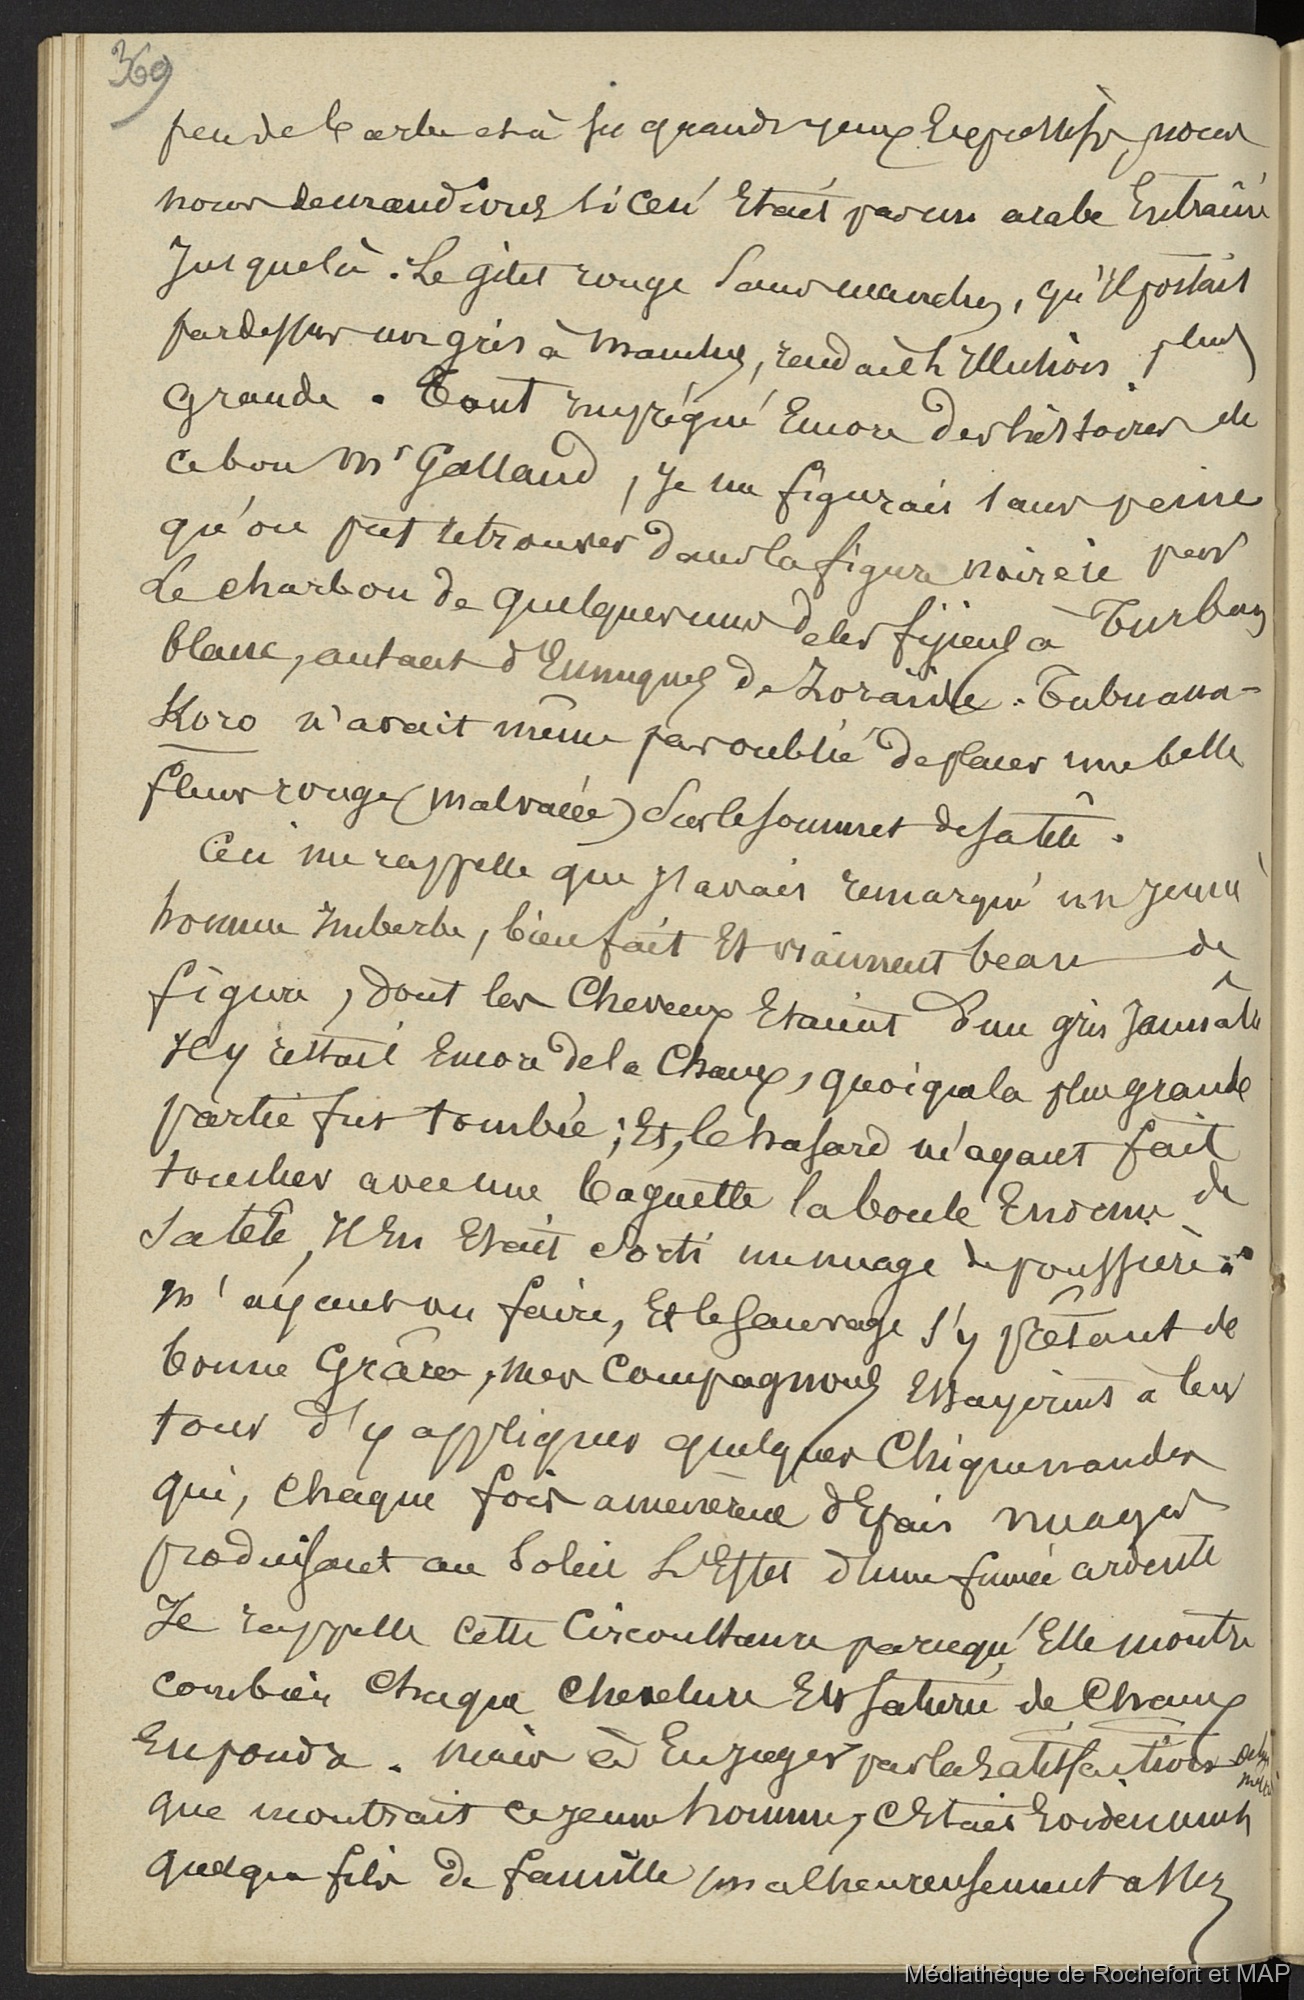 369
peu de barbe et à ses grands yeux Expressifs, nous
nous demandions si ceci Etait pas un arabe Entraîné
Jusque là. Le gilet rouge Sans manches, qu'Il portait
pardessus un gris à manches, rendait l'Illusion plus
grande. Tout impregné Encore des histoires de
ce bon Mr Galland, Je me figurais sans peine
qu'on put retrouver dans la figure noircie par
le charbon de quelques uns de les fijiens à Turban
blanc, autant d'Eunuques de Zoraïde. Tubuana-
Koro n'avait même pas oublié de placer une belle
fleur rouge (malvacée) Sur le sommet de sa tête.
Ceci me rappelle que J'avais remarqué un jeune
homme Imberbe, bien fait Et vraiment beau de
figure, dont les Cheveux Etaient d'un gris Jaunâtre
Il y restait Encore de la Chaux, quoique la plus grande
partie fut tombée; Et, le hasard m'ayant fait
toucher avec une baguette la boule Enorme de
Sa tête, Il En Etait Sorti un nuage de poussière
M'ayant vu faire, Et le Sauvage s'y prêtant de
bonne Grâce, mes Compagnons Essayèrent à leur
tour d'y appliquer quelques Chiquenaudes
qui, Chaque fois amenèrent d'Epais nuages
produisant au Soleil L'Effet d'une fumée ardente
Je rappelle Cette Circonstance parcequ'Elle montre
combien Chaque Chevelure Est saturée de Chaux
En poudre. Mais à En juger par la Satisfaction
que montrait ce jeune homme, C'Etait Evidemment
quelque fils de famille malheureusement assez
Médiathèque de Rochefort et MAP